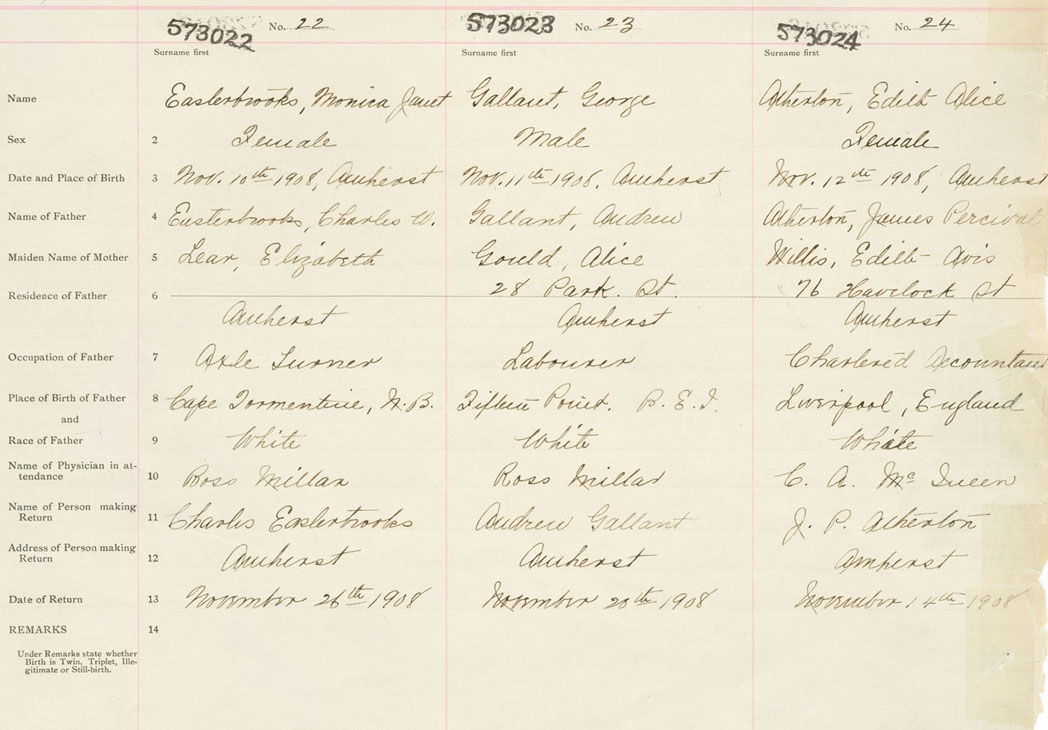 573022 No. 22 573023 No. 23 573024 No. 24
Surname first Surname first Surname first
Name Easterbrooks, Monica Janet Gallant, George Atherton, Edith Alice
Sex 2 Female Male Female
Date and Place of Birth 3 Nov. 10th 1908, Amherst Nov. 11th 1908, Amherst Nov. 12th 1908, Amherst
Name of Father 4 Easterbrooks, Charles W. Gallant, Andrew Atherton, James Percival
Maiden Name of Mother 5 Lear, Elizabeth Gould, Alice Willis, Edith Avis
28 Park. St. 76 Havelock St
Residence of Father 6
Amherst Amherst Amherst
Occupation of Father 7 Axle Turner Labourer Chartered Accountant
Place of Birth of Father 8 Cape Tormentine, N.B. Fifteen Point. P.E.I. Liverpool, England
and
Race of Father 9 White White White
Name of Physician in at-
tendance 10 Ross Millar Ross Millar C. A. Mc Queen
Name of Person making
Return 11 Charles Easterbrooks Andrew Gallant J. P. Atherton
Address of Person making
Return 12 Amherst Amherst Amherst
Date of Return 13 November 26th 1908 November 20th 1908 November 14th 1908
REMARKS 14
Under Remarks state whether
Birth is Twin, Triplet, Ille-
gitimate or Still-birth.